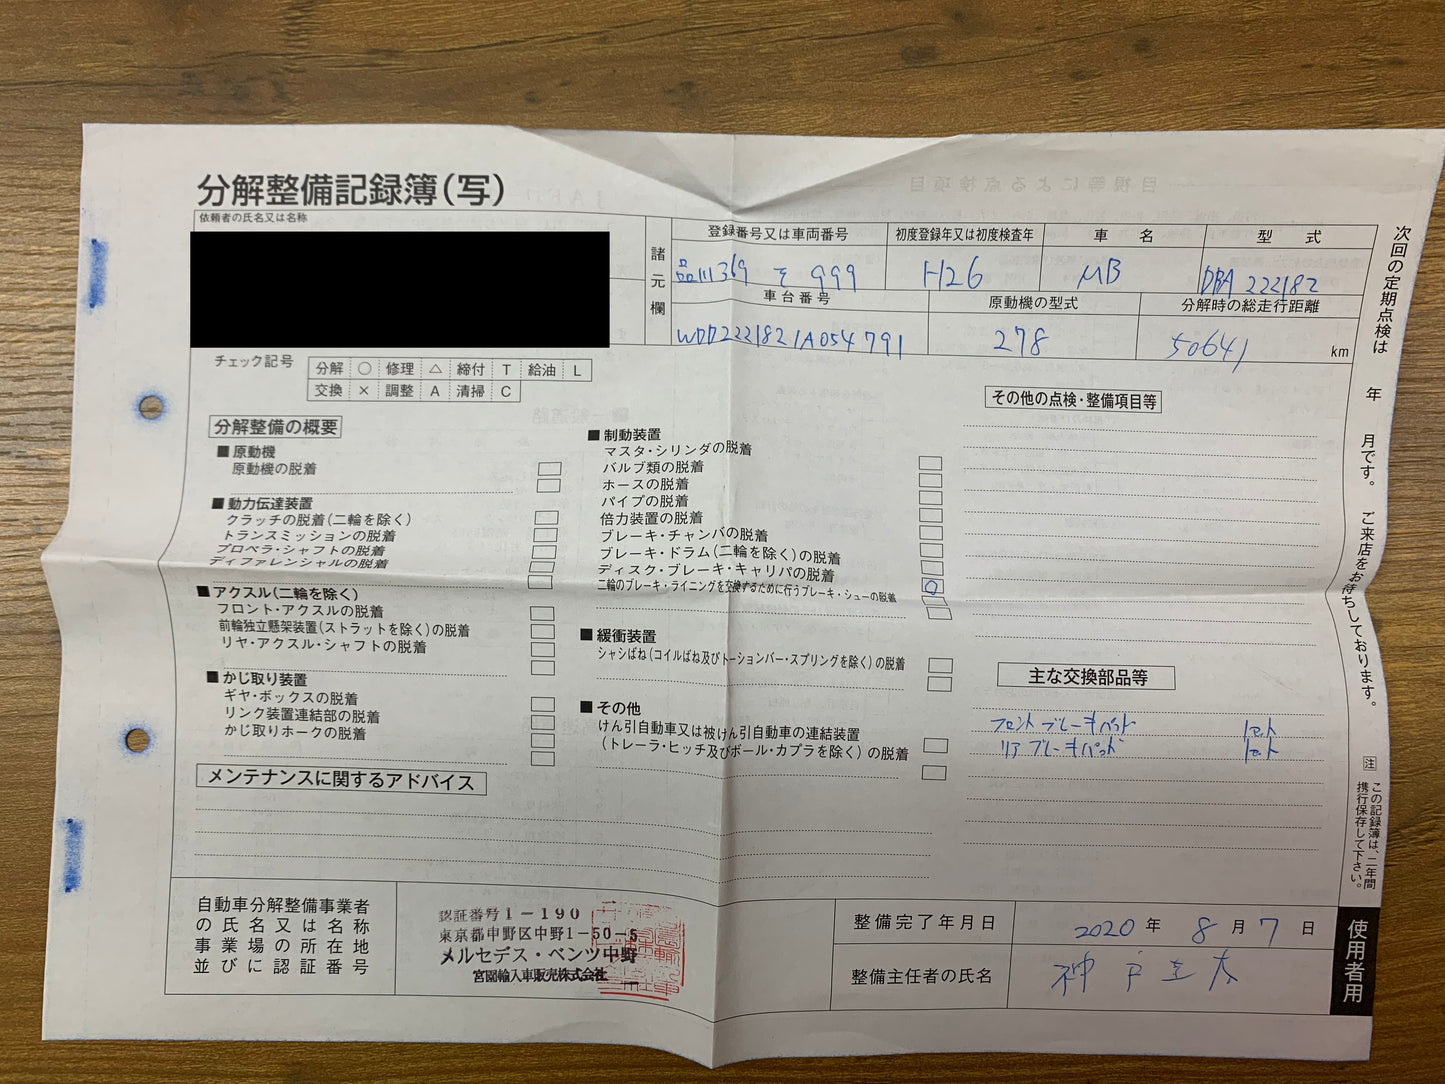 分解整備記録簿(写)
依頼者の氏名又は名称
諸元欄
登録番号又は車両番号
初度登録年又は初度検査年
車名
型式
品川369 そ 999
H26
MB
DBA 222182
車台番号
原動機の型式
分解時の総走行距離
WDD2221821A054791
278
50641 km
チェック記号
分解 ○ 修理 △ 締付 T 給油 L
交換 × 調整 A 清掃 C
分解整備の概要
■ 原動機
原動機の脱着
■ 動力伝達装置
クラッチの脱着(二輪を除く)
トランスミッションの脱着
プロペラ・シャフトの脱着
ディファレンシャルの脱着
■ アクスル(二輪を除く)
フロント・アクスルの脱着
前輪独立懸架装置(ストラットを除く)の脱着
リヤ・アクスル・シャフトの脱着
■ かじ取り装置
ギヤ・ボックスの脱着
リンク装置連結部の脱着
かじ取りホークの脱着
■ 制動装置
マスタ・シリンダの脱着
バルブ類の脱着
ホースの脱着
パイプの脱着
倍力装置の脱着
ブレーキ・チャンバの脱着
ブレーキ・ドラム(二輪を除く)の脱着
ディスク・ブレーキ・キャリパの脱着
○
二輪のブレーキ・ライニングを交換するために行うブレーキ・シューの脱着
■ 緩衝装置
シャシばね(コイルばね及びトーションバー・スプリングを除く)の脱着
■ その他
けん引自動車又は被けん引自動車の連結装置
(トレーラ・ヒッチ及びボール・カプラを除く)の脱着
その他の点検・整備項目等
主な交換部品等
フロント ブレーキパット 1セット
リア ブレーキパッド 1セット
メンテナンスに関するアドバイス
自動車分解整備事業者
の氏名又は名称
事業場の所在地
並びに認証番号
認証番号1-190
東京都中野区中野1-50-5
メルセデス・ベンツ中野
宮園輸入車販売株式会社
整備完了年月日
2020年 8月 7日
整備主任者の氏名
次回の定期点検は 年 月です。 ご来店をお待ちしております。
注 この記録簿は、二年間
携行保存して下さい。
使用者用